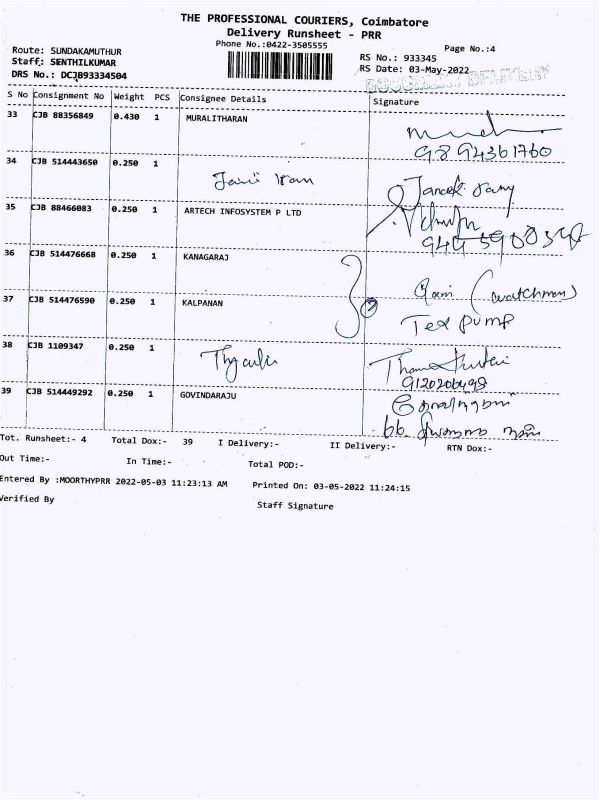 THE PROFESSIONAL COURIERS, Coimbatore
Delivery Runsheet - PRR
Phone No.:0422-3505555
Page No.:4
Route: SUNDAKAMUTHUR
Staff: SENTHILKUMAR
DRS No.: DCJB93334504
RS No.: 933345
RS Date: 03-May-2022
DOCUMENT DELIVERY
S No Consignment No Weight PCS Consignee Details Signature
33 CJB 88356849 0.430 1 MURALITHARAN
9894361760
34 CJB 514443650 0.250 1
35 CJB 88466083 0.250 1 ARTECH INFOSYSTEM P LTD
36 CJB 514476668 0.250 1 KANAGARAJ
(watchman)
37 CJB 514476590 0.250 1 KALPANAN
Tex pump
38 CJB 1109347 0.250 1
39 CJB 514449292 0.250 1 GOVINDARAJU
Tot. Runsheet:- 4 Total Dox:- 39 I Delivery:- II Delivery:- RTN Dox:-
Out Time:- In Time:- Total POD:-
Entered By :MOORTHYPRR 2022-05-03 11:23:13 AM Printed On: 03-05-2022 11:24:15
Verified By Staff Signature